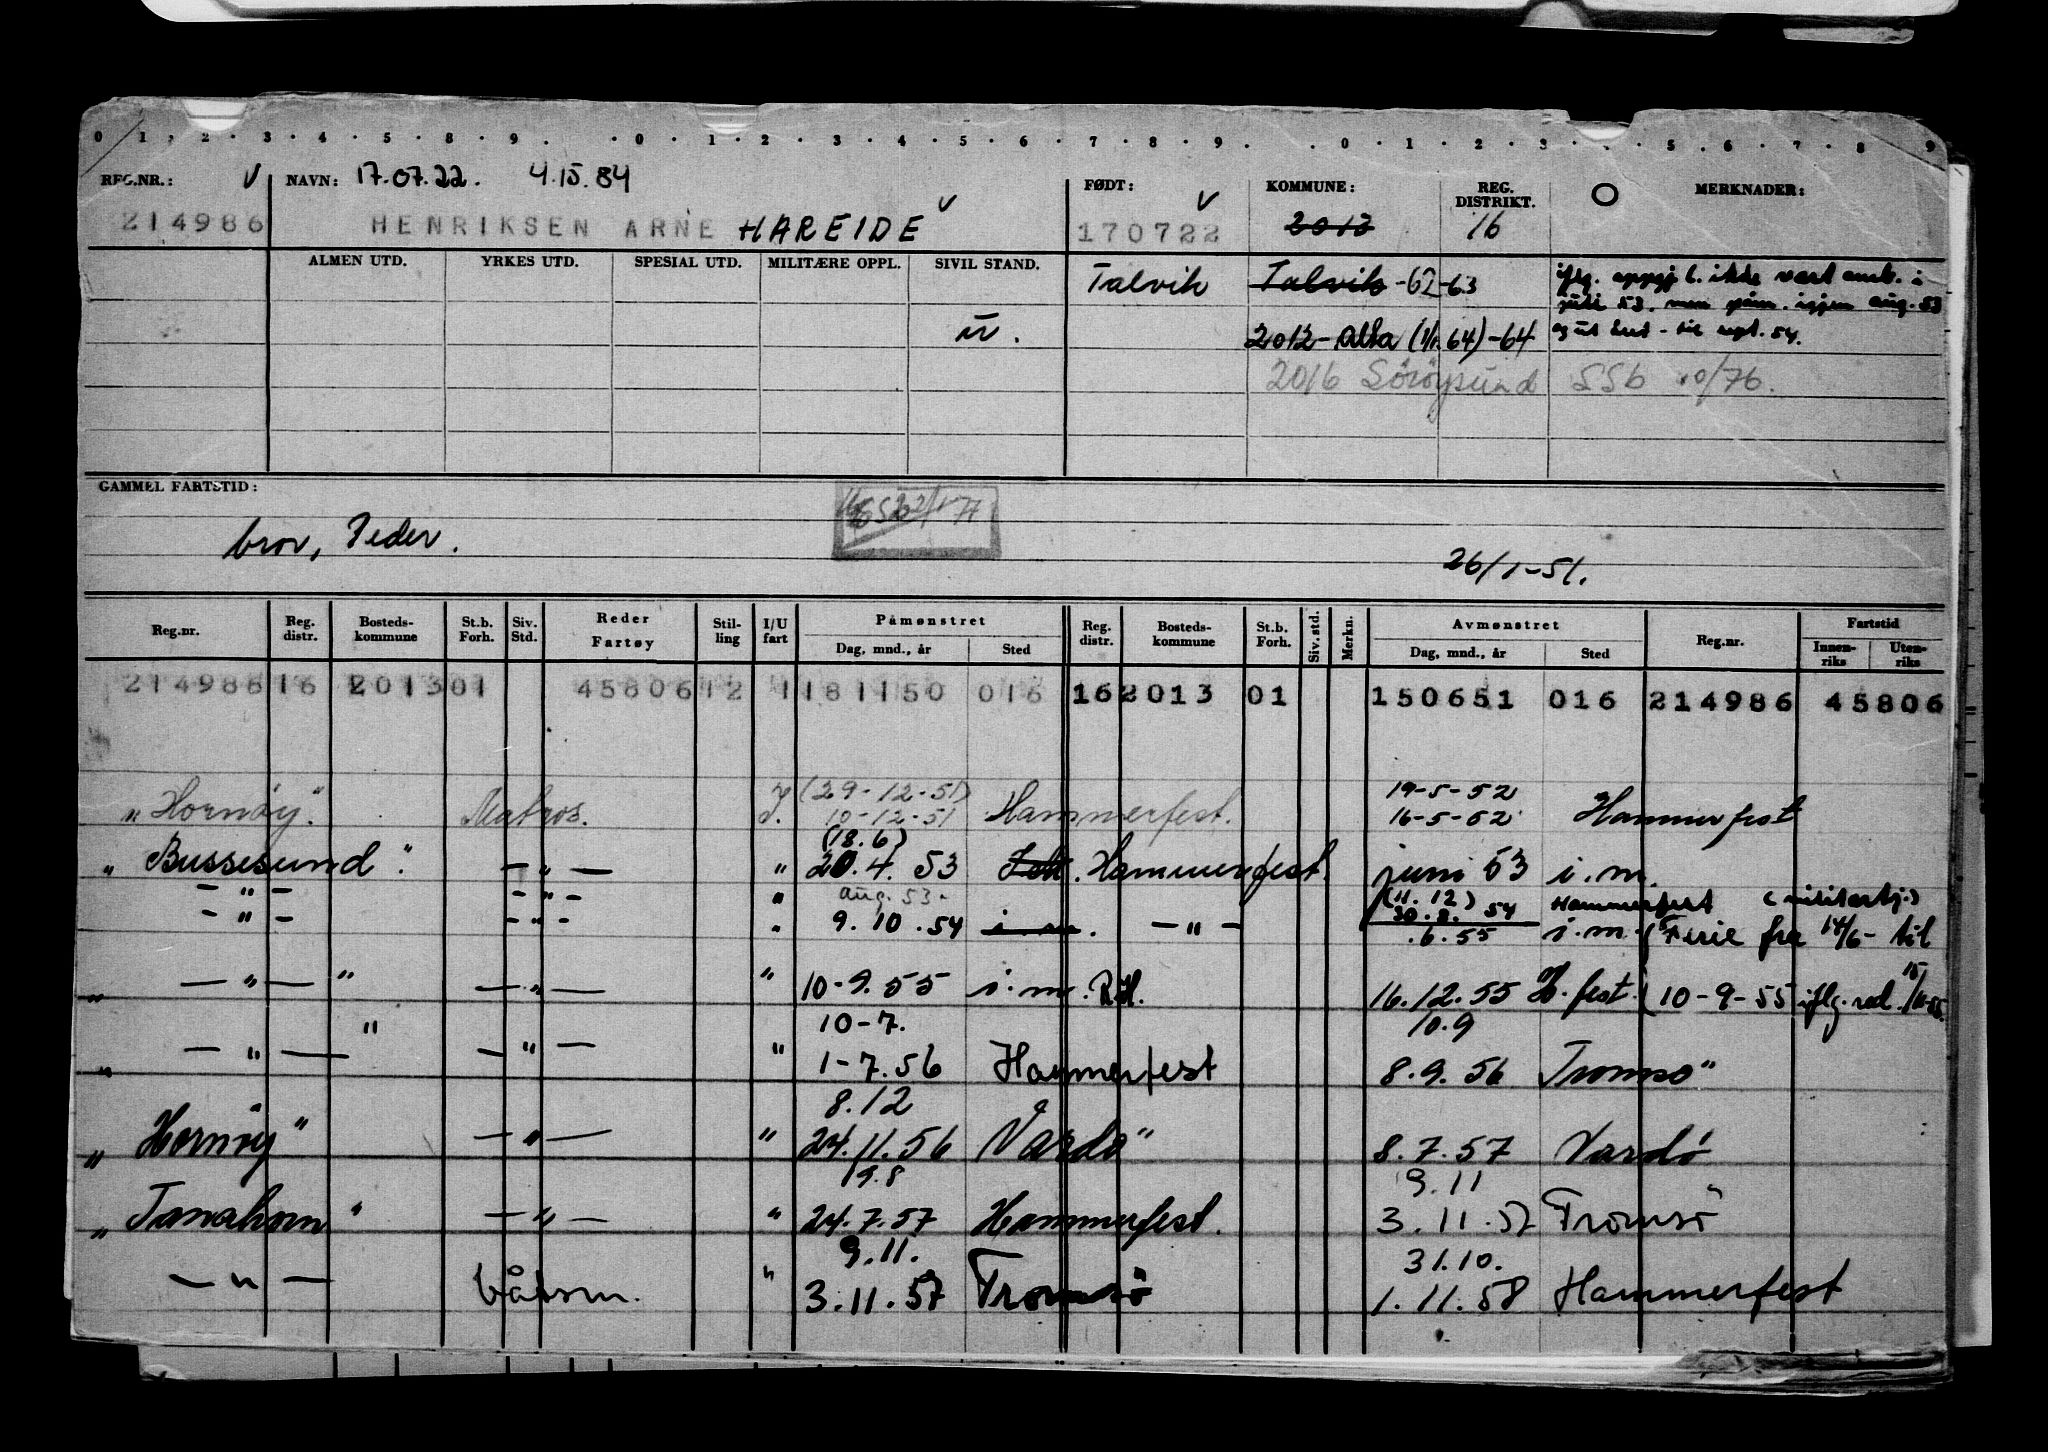 0 1 . 2 . 3 . 4 . 5 . 8 . 9 . . 0 . 1 . 2 . 3 . 4 . 5 . 6 . 7 . 8 . 9 . . 0 . 1 . 2 . 3 . . 5 . 6 . 7 . 8 . 9
REG.NR.: V NAVN: 17.07.22. 4.15.84 FØDT: V KOMMUNE: REG. DISTRIKT. O MERKNADER:
214986 HENRIKSEN ARNE HAREIDE V 170722 2013 16
ALMEN UTD. YRKES UTD. SPESIAL UTD. MILITÆRE OPPL. SIVIL STAND. Talvik Talvik -62-63 ikke vært i
juli 53. men igjen aug. 53
2012 - Alta (1/1.64) -64 til sept. 54.
2016 Söröysund SSb 10/76.
GAMMEL FARTSTID:
bror, Peder.
26/1-51.
Reg.nr. Reg. distr. Bosteds-kommune St.b. Forh. Siv. Std. Reder Fartøy Stil-ling I/U fart Påmønstret Reg. distr. Bosteds-kommune St.b. Forh. Siv. std. Merkn. Avmønstret Reg.nr. Fartstid
Dag, mnd., år Sted Dag, mnd., år Sted Innen-riks Uten-riks
214986 16 2013 01 45806 12 1 181150 016 16 2013 01 150651 016 214986 45806
(29-12-51) 19-5-52
"Hornöy". Matros. 10-12-51 Hammerfest. 16-5-52 Hammerfest
(18.6)
"Bussesund". — " — " 20.4.53 Hammerfest. juni 53 i.m.
— " — — " — " aug. 53. (11.12) 54 Hammerfest
— " — — " — " 9.10.54 i.m. — " — .6.55 i.m. (Ferie fra 14/6 - til
" — " — " — " — " 10-9.55 i.m. 16.12.55 H.fest. (10-9-55 iflg. red.
10-7. 10.9
" — " — " — " — " 1-7.56 Hammerfest 8.9.56 Tromsö
8.12
"Hornöy" — " — " 24.11.56 Vardö 8.7.57 Vardö
19.8 9.11
"Tanahorn" — " — " 24.7.57 Hammerfest. 3.11.57 Tromsö
9.11. 31.10.
— " — båtsm. " 3.11.57 Tromsö 1.11.58 Hammerfest